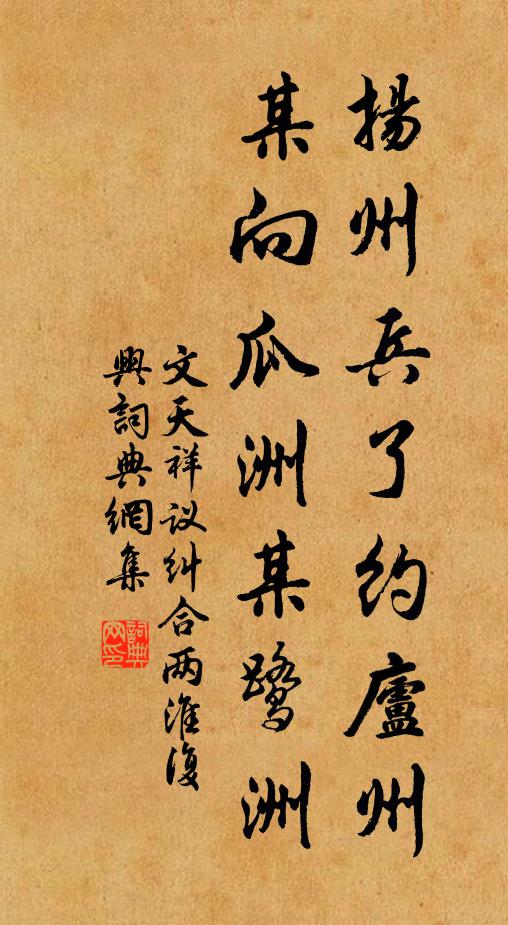 揚州兵了約廬州
某向瓜洲某鷺洲
文天祥议纠合两淮復
興詞典網集
詞典網印